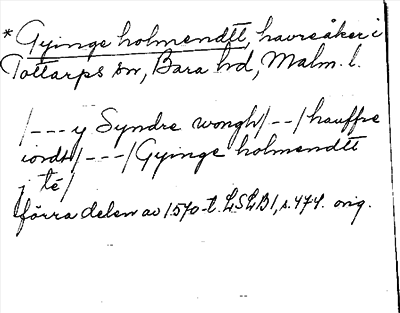 * Gyinge holmendtt, havreåker i
Tottarps sn, Bara hd, Malm. l.
/--- y Syndre wongh/--/hauffre
iordt/---/Gyinge holmendtt
j té/
förra delen av 1570-t. LSLB1, s. 474. orig.